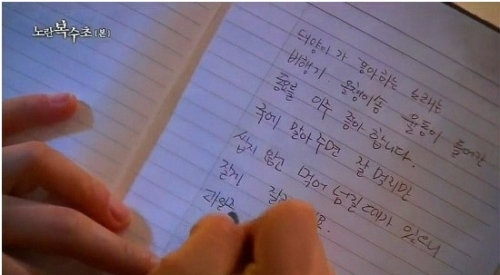 노란복수초(본)
태양이가 좋아하는 노래는
비행기. 올챙이송 율동이 들어간
동요를 아주 좋아 합니다.
국에 말아주면 잘 먹지만
씹지 않고 먹어 넘길 때가 있으니
잘게
과일은